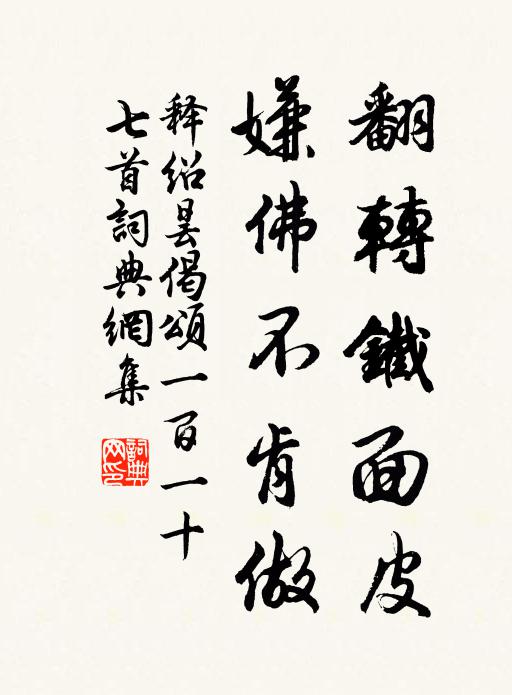 翻轉鐵面皮
嫌佛不肯做
释绍昙偈頌一百一十
七首詞典網集
詞典网印